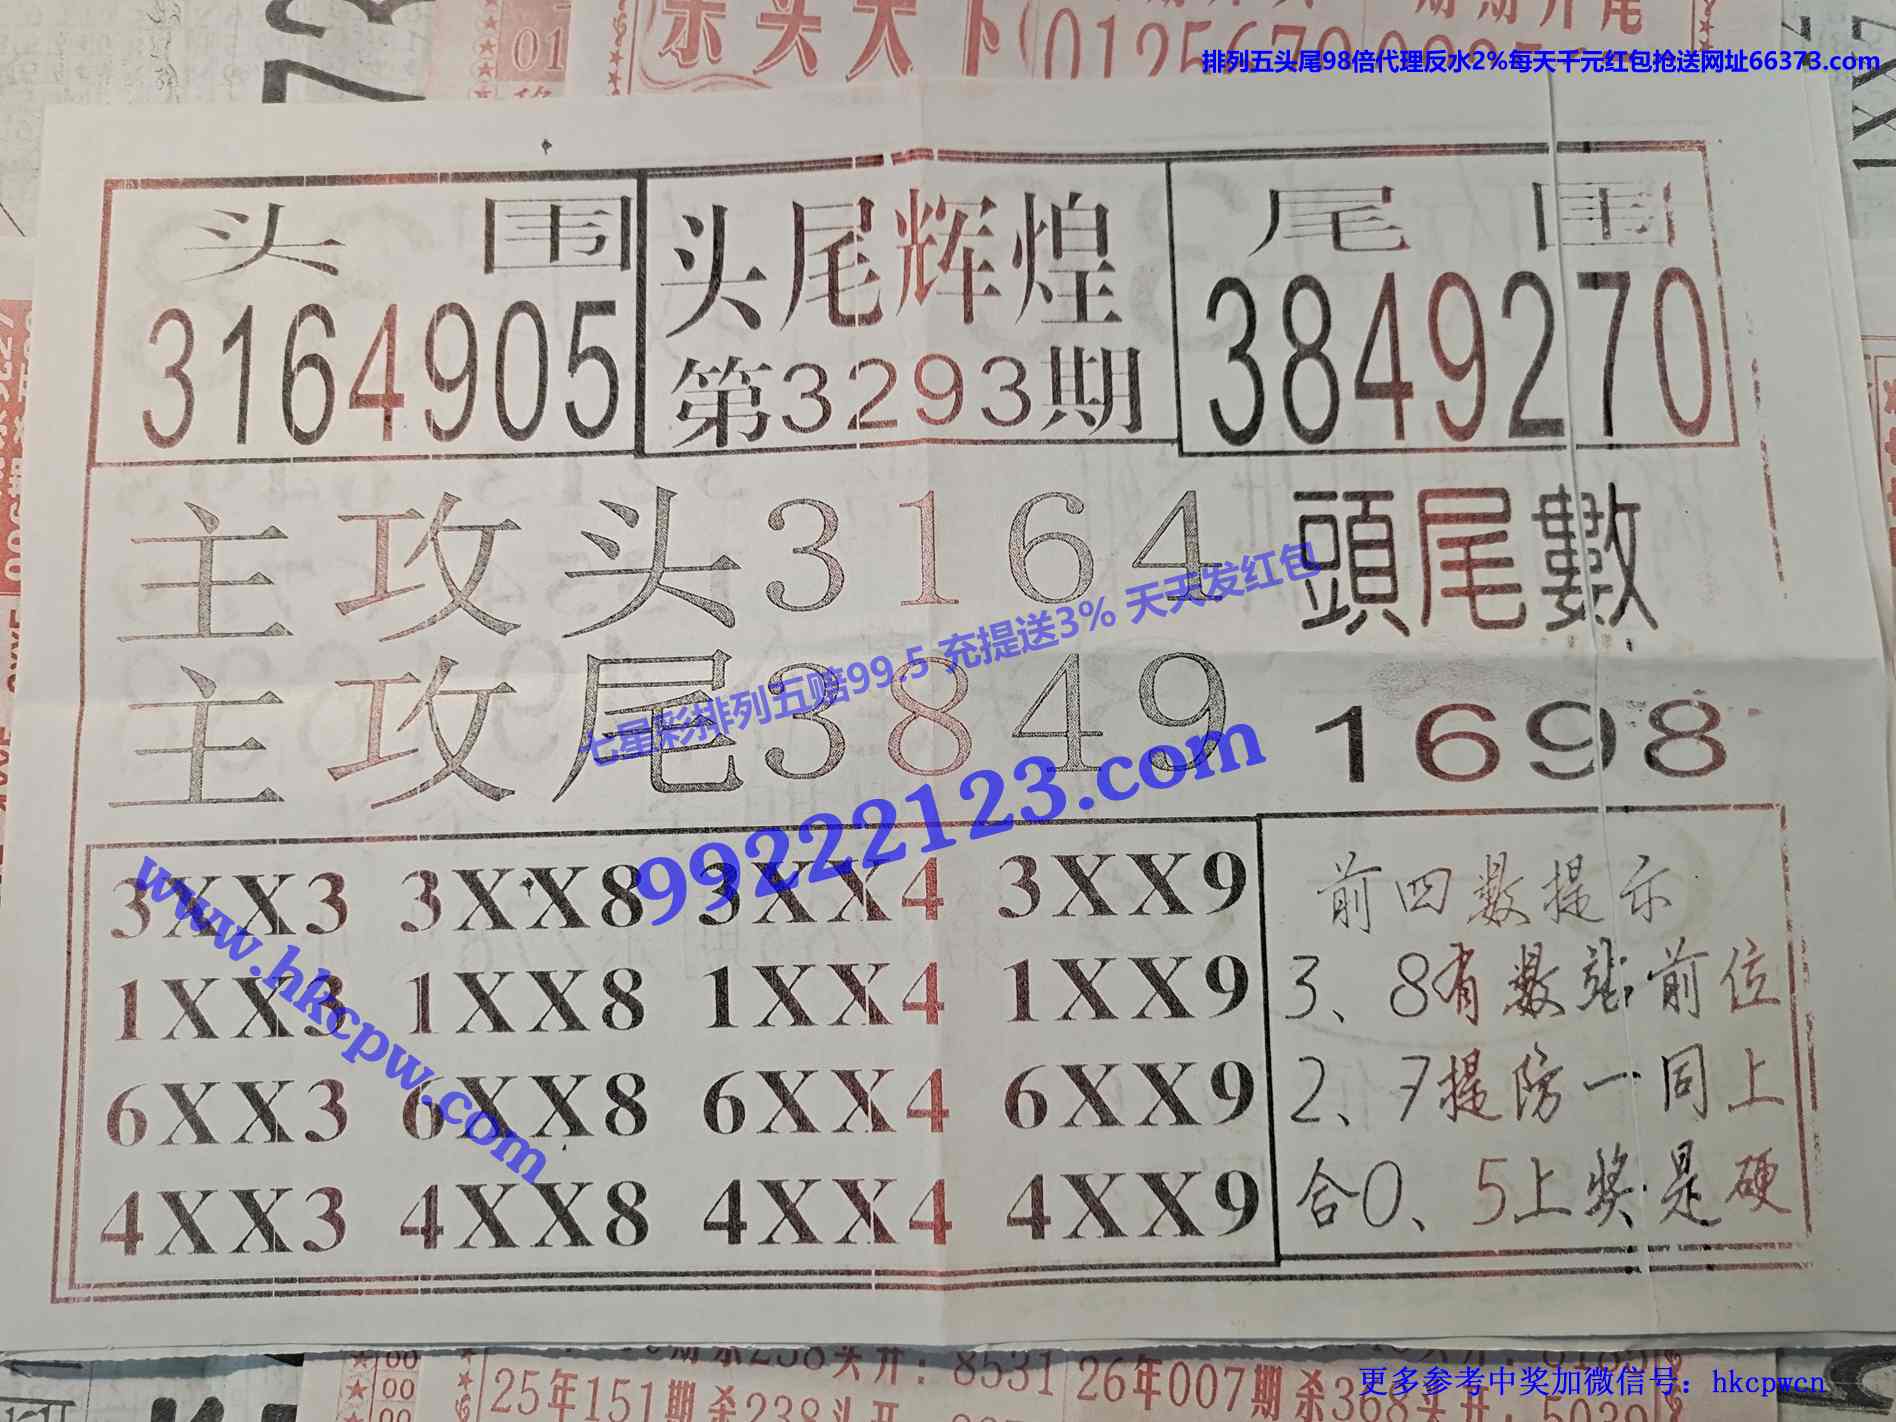 杀头天下
01
排列五头尾98倍代理反水2%每天千元红包抢送网址66373.com
头围
3164905
头尾辉煌
第3293期
尾围
3849270
主攻头3164
主攻尾3849
頭尾數
1698
七星彩排列五赔99.5 充提送3% 天天发红包
99222123.com
www.hkcpw.com
3XX3 3XX8 3XX4 3XX9
1XX3 1XX8 1XX4 1XX9
6XX3 6XX8 6XX4 6XX9
4XX3 4XX8 4XX4 4XX9
前四数提示
3、8有数站前位
2、7提防一同上
合0、5上奖是硬
00
00
00
25年151期杀238头开：8531
26年007期杀368头开：
更多参考中奖加微信号：hkcpwcn